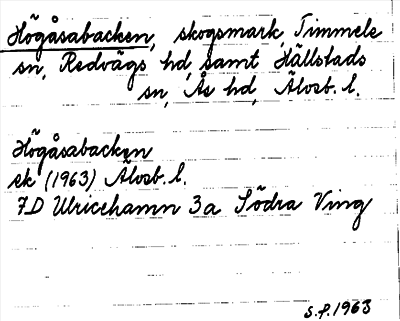 Högåsabacken, skogsmark, Timmele
sn, Redvägs hd, samt Hällstads
sn, Ås hd, Älvsb. l.
Högåsabacken
sk (1963) Älvsb. l.
7D Ulricehamn 3a Södra Ving
s.f. 1963